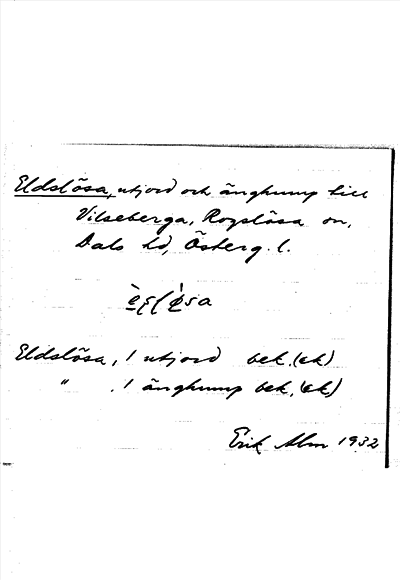 Eldslösa, utjord och änghump till
Vilseberga, Rogslösa sn,
Dals hd, Österg. l.
Eldslösa, 1 utjord bek. (ek)
" . 1 änghump bek. (ek)
Erik Alm 1932